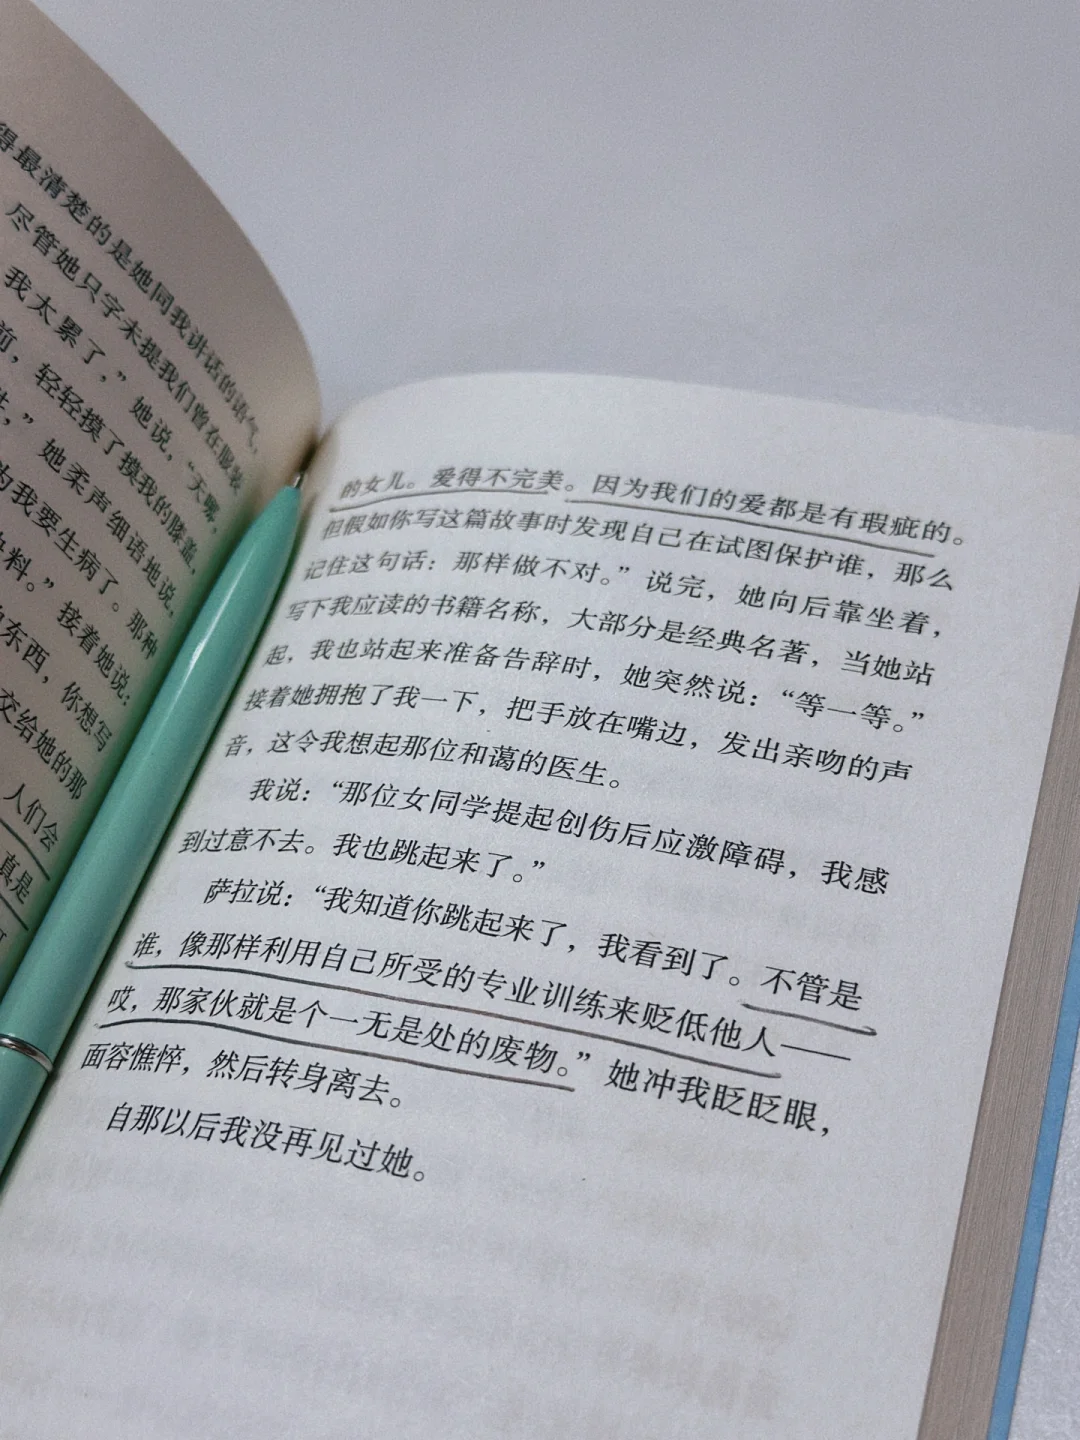 得最清楚的是她同我讲话的语气，
尽管她只字未提我们曾在服装
我太累了，”她说，“天哪，
前，轻轻摸了摸我的膝盖，
”她柔声细语地说，
为我要生病了。那种
料。”接着她说：
东西，你想写
交给她的那
人们会
真是
的女儿。爱得不完美。因为我们的爱都是有瑕疵的。
但假如你写这篇故事时发现自己在试图保护谁，那么
记住这句话：那样做不对。”说完，她向后靠坐着，
写下我应读的书籍名称，大部分是经典名著，当她站
起，我也站起来准备告辞时，她突然说：“等一等。”
接着她拥抱了我一下，把手放在嘴边，发出亲吻的声
音，这令我想起那位和蔼的医生。
我说：“那位女同学提起创伤后应激障碍，我感
到过意不去。我也跳起来了。”
萨拉说：“我知道你跳起来了，我看到了。不管是
谁，像那样利用自己所受的专业训练来贬低他人——
哎，那家伙就是个一无是处的废物。”她冲我眨眨眼，
面容憔悴，然后转身离去。
自那以后我没再见过她。